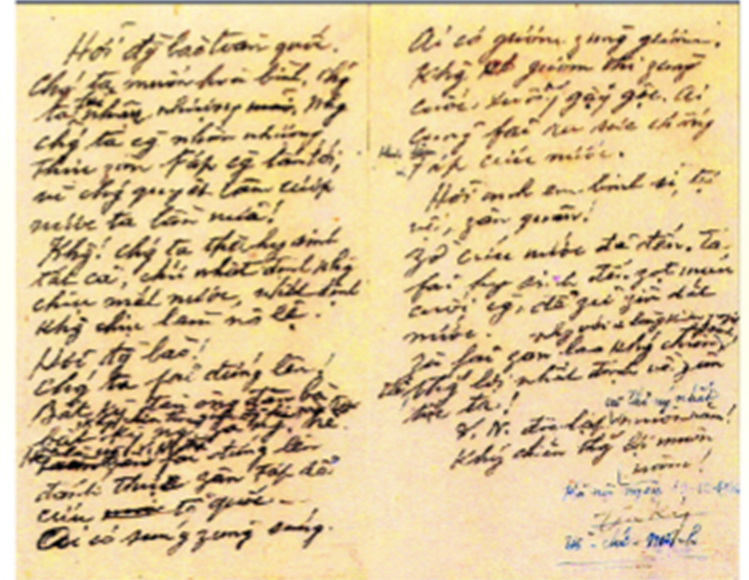 Hỡi đg̀ bào toàn quốc.
Chǵ ta muốn hoà bình, chǵ
ta đã nhân nhượng. Nhg
chǵ ta cg̀ nhân nhượng
thực zân Fáp cg̀ lấn tới,
vì chǵ quyết tâm cướp
nước ta lần nữa!
Khg! chǵ ta thà hy sinh
tất cả, chứ nhất định khg
chịu mất nước, nhất định
khg chịu làm nô lệ.
Hỡi đg̀ bào!
Chǵ ta fải đứng lên!
Bất kỳ đàn ông đàn bà
bất kỳ
fải đứng lên
đánh thực zân Fáp để
cứu tổ quốc
Ai có súng zùng súng.
Ai có gươm zùng gươm.
Khg có gươm thì zùng
cuốc, xuổng gậy gộc. Ai
cũng fải ra sức chống
Fáp cứu nước.
Hỡi anh em binh sĩ, tự
vệ, zân quân!
Zờ cứu nước đã đến. Ta
fải hy sinh đến zọt máu
cuối cg̀, để zữ zìn đất
nước.
Zù fải zan lao khg chiến
thg lợi nhất định về zân
tộc ta!
V. N. độc lập và thống nhất muôn năm!
Khg chiến thg lợi muôn
năm!
Hà nội ngày 19-12-1946
Hồ-chí-Minh